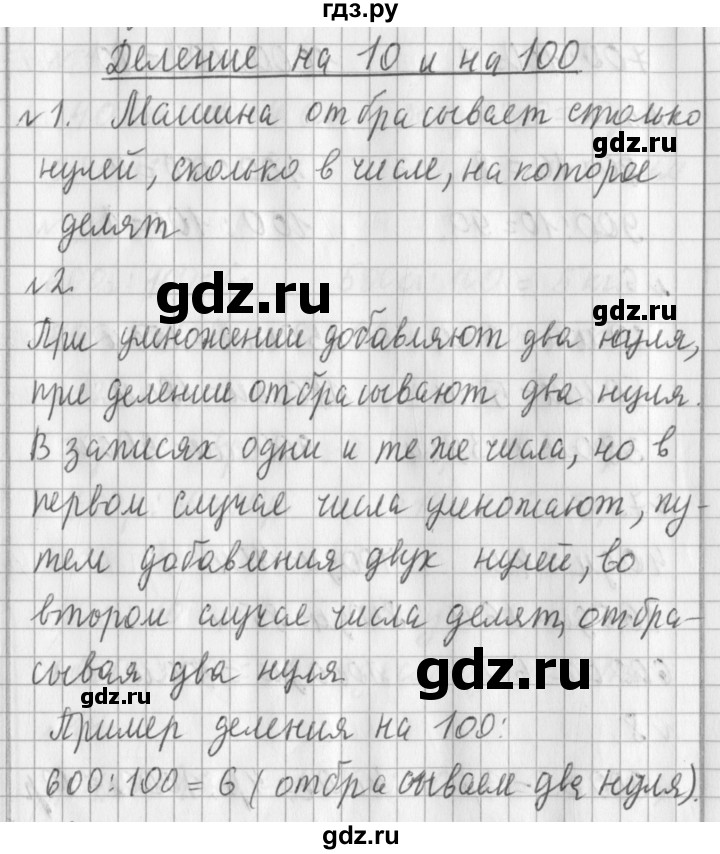 гдз.ру
Деление на 10 и на 100
№1. Машина отбрасывает столько
gdz.ru
нулей, сколько в числе, на которое
делят
№2.
gdz.ru
gdz.ru
При умножении добавляют два нуля,
при делении отбрасывают два нуля.
В записях одни и те же числа, но в
первом случае числа умножают, пу-
тем добавления двух нулей, во
втором случае числа делят, отбра-
сывая два нуля.
gdz.ru
gdz.ru
Пример деления на 100:
600:100=6 (отбрасываем два нуля).
gdz.ru